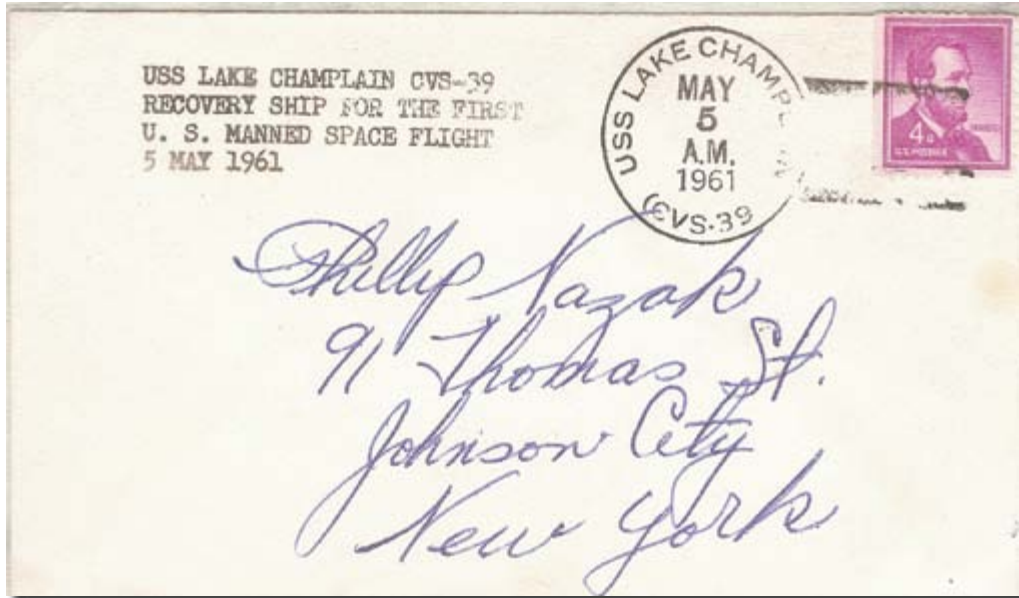 USS LAKE CHAMPLAIN CVS-39
RECOVERY SHIP FOR THE FIRST
U. S. MANNED SPACE FLIGHT
5 MAY 1961
USS LAKE CHAMP
MAY
5
A.M.
1961
(CVS-39
4¢
U.S. POSTAGE
Phillip Nazak
91 Thomas St.
Johnson City
New York